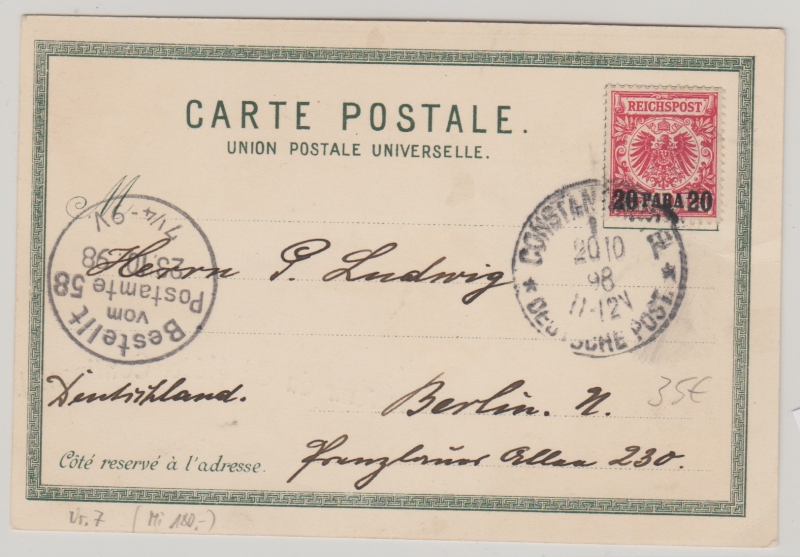 CARTE POSTALE.
UNION POSTALE UNIVERSELLE.
REICHSPOST
20 PARA 20
M
CONSTANTINOPEL
1
20 10
98
11-12V
* DEUTSCHE POST. *
Bestellt
vom
Postamte 58
23.10.98
7 1/4 - 9V
Herrn P. Ludwig
Deutschland.
Berlin. N.
Prenzlauer Allee 230.
35€
Côté reservé à l'adresse.
Nr. 7 (Mi 180.-)